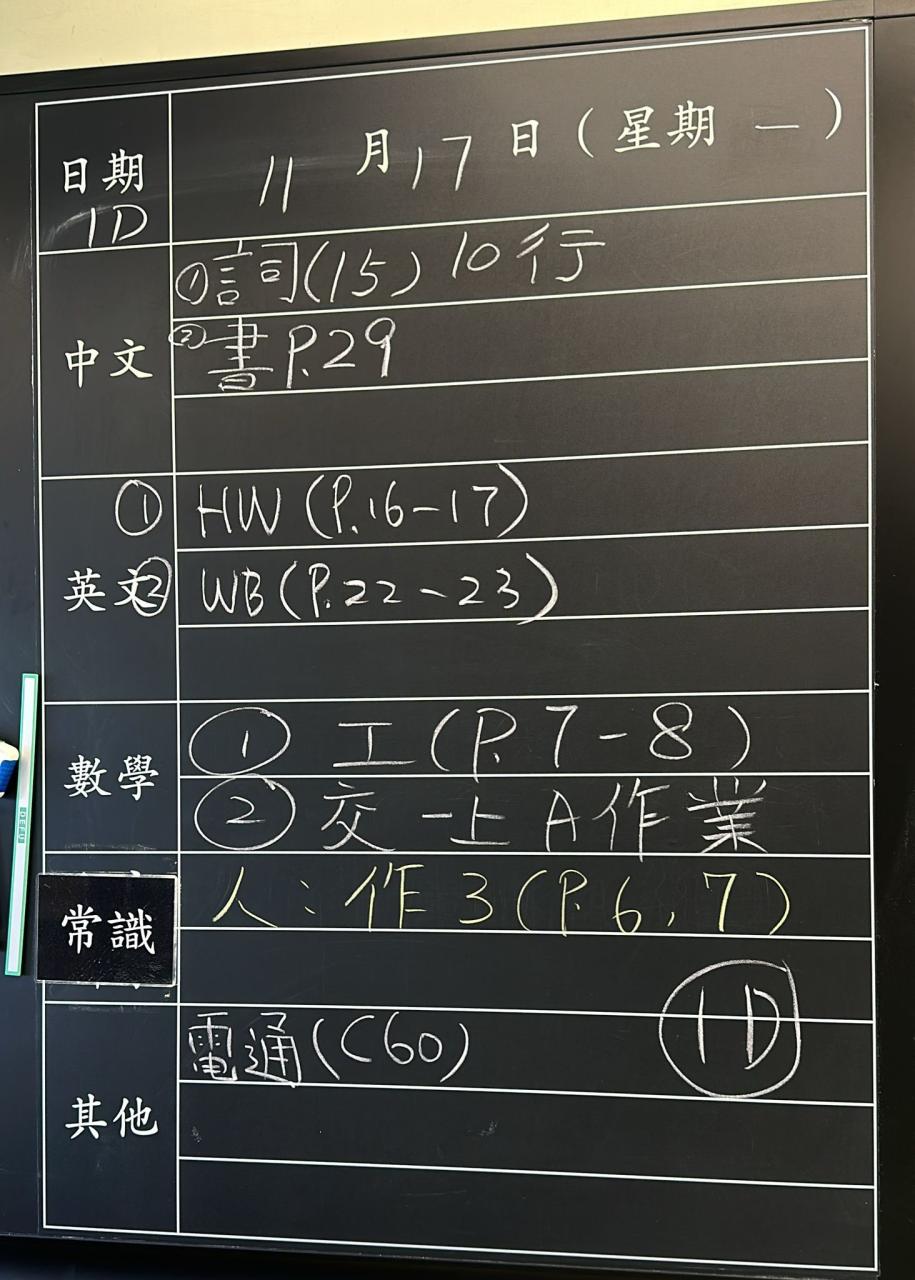 日期 11月17日(星期一)
1D
中文
①詞(15) 10行
②書P.29
英文
① HW (P.16-17)
② WB (P.22-23)
數學
① 工(P.7-8)
② 交一上A作業
常識
人:作3(P.6,7)
1D
其他
電通(C60)